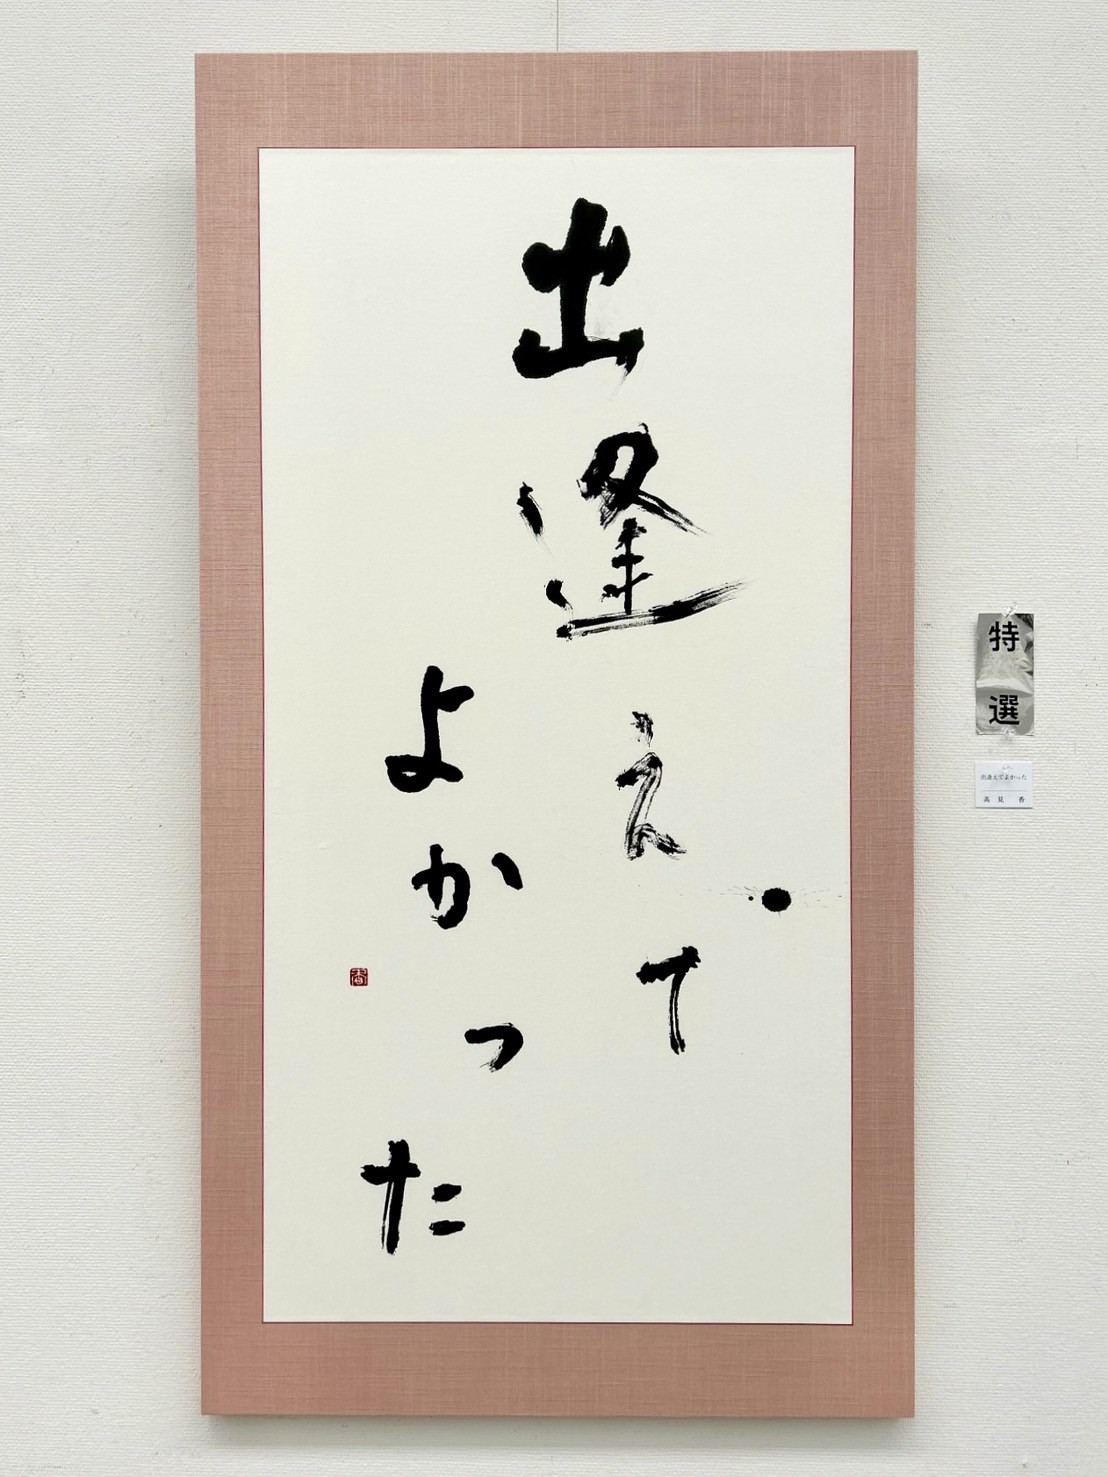 出逢えて
よかった
香
特選
出逢えてよかった
高見 香